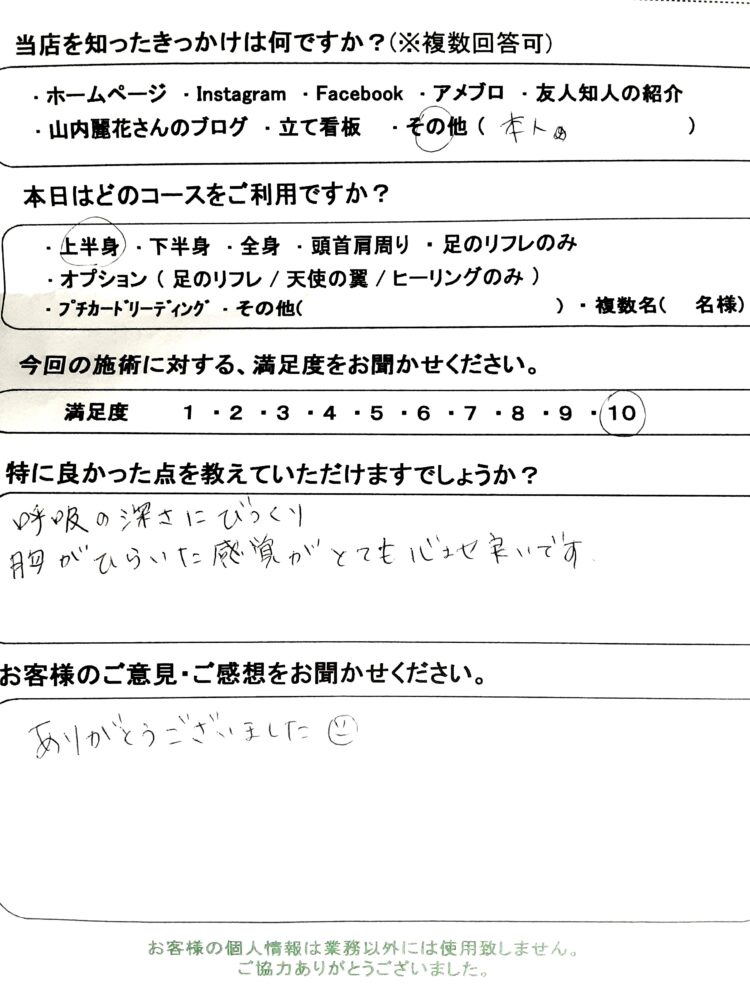 当店を知ったきっかけは何ですか？(※複数回答可)
・ホームページ ・Instagram ・Facebook ・アメブロ ・友人知人の紹介
・山内麗花さんのブログ ・立て看板 ・その他（ 本人 ）
本日はどのコースをご利用ですか？
・上半身 ・下半身 ・全身 ・頭首肩周り ・足のリフレのみ
・オプション（ 足のリフレ / 天使の翼 / ヒーリングのみ ）
・ﾌﾟﾁｶｰﾄﾞﾘｰﾃﾞｨﾝｸﾞ ・その他( ） ・複数名( 名様)
今回の施術に対する、満足度をお聞かせください。
満足度 1 ・2 ・3 ・4 ・5 ・6 ・7 ・8 ・9 ・10
特に良かった点を教えていただけますでしょうか？
呼吸の深さにびっくり
胸がひらいた感覚がとても心地良いです.
お客様のご意見・ご感想をお聞かせください。
ありがとうございました
お客様の個人情報は業務以外には使用致しません。
ご協力ありがとうございました。